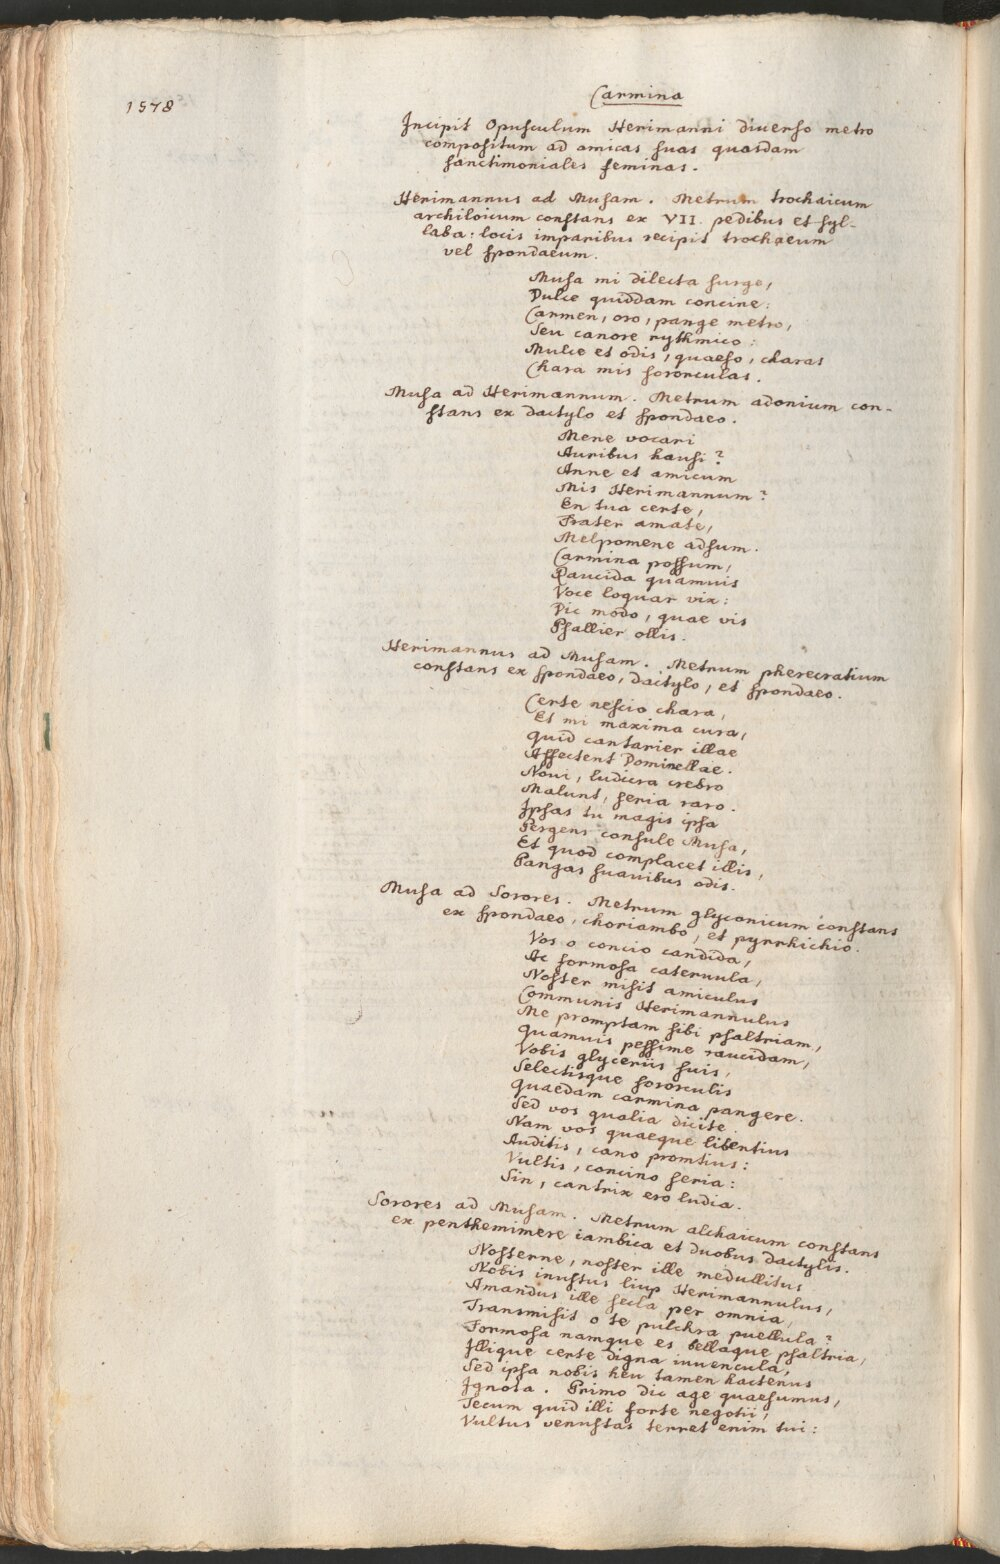 1578
Carmina
Incipit Opusculum Herimanni diuerso metro
compositum ad amicas suas quasdam
sanctimoniales feminas.
Herimannus ad Musam. Metrum trochaicum
archiloicum constans ex VII. pedibus et syl-
laba: locis imparibus recipit trochaeum
vel spondaeum.
Musa mi dilecta surge,
Dulce quiddam concine:
Carmen, oro, pange metro,
Seu canore rythmico:
Mulce et odis, quaeso, charas
Chara mis sororculas.
Musa ad Herimannum. Metrum adonium con-
stans ex dactylo et spondaeo.
Mene vocari
Auribus hausi?
Anne et amicum
Mis Herimannum?
En tua certe,
Frater amate,
Melpomene adsum.
Carmina possum,
Raucida quamuis
Voce loquar vix:
Dic modo, quae vis
Psallier ollis.
Herimannus ad Musam. Metrum pherecratium
constans ex spondaeo, dactylo, et spondaeo.
Certe nescio chara,
Et mi maxima cura,
Quid cantarier illae
Affectent Dominellae.
Noui, ludicra crebro
Malunt, seria raro.
Ipsas tu magis ipsa
Pergens consule Musa,
Et quod complacet illis,
Pangas suauibus odis.
Musa ad Sorores. Metrum glyconicum constans
ex spondaeo, choriambo, et pyrrhichio.
Vos o concio candida,
Ac formosa cateruula,
Noster misit amiculus
Communis Herimannulus
Me promptam sibi psaltriam,
Quamuis pessime raucidam,
Vobis glyceriis suis,
Selectisque sororculis
Quaedam carmina pangere.
Sed vos qualia dicite
Nam vos quaeque libentius
Auditis, cano promtius:
Vultis, concino seria:
Sin, cantrix ero ludia.
Sorores ad Musam. Metrum alchaicum constans
ex penthemimere iambica et duobus dactylis.
Nosterne, noster ille medullitus
Nobis inustus liup Herimannulus,
Amandus ille secla per omnia,
Transmisit o te pulchra puellula?
Formosa namque es bellaque psaltria,
Illique certe digna iuuencula,
Sed ipsa nobis heu tamen hactenus
Ignota. Primo dic age quaesumus,
Tecum quid illi forte negotii,
Vultus venustas terret enim tui: